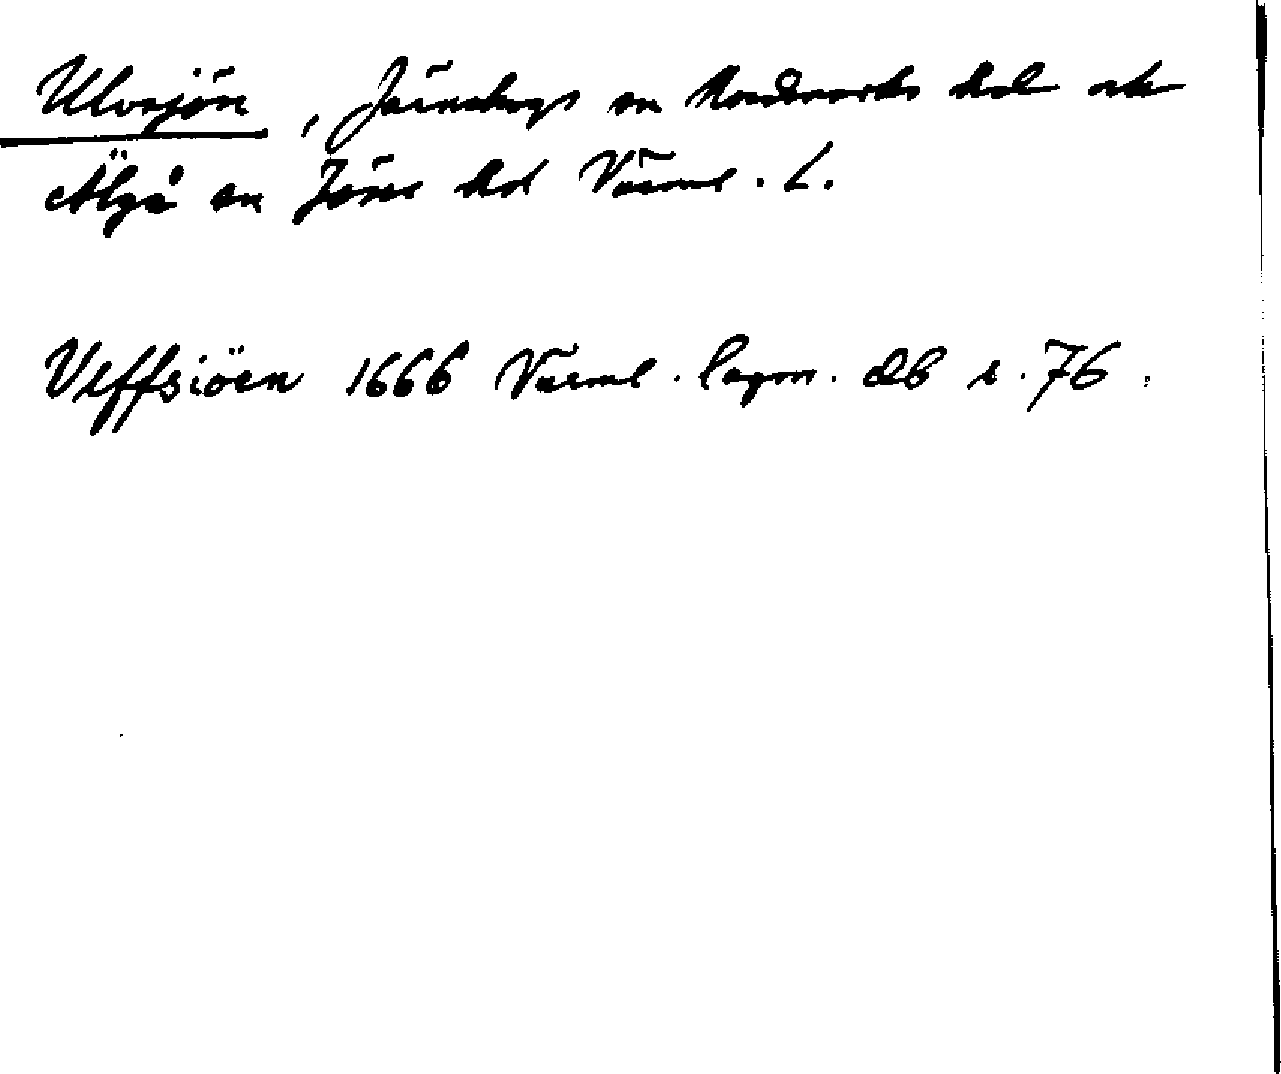 Ulvsjön, Järnskogs sn Nordmarks hd och
Älgå sn Jösse hd Värml. L.
Vlffsiöen 1666 Värml. lagm. db s. 76.